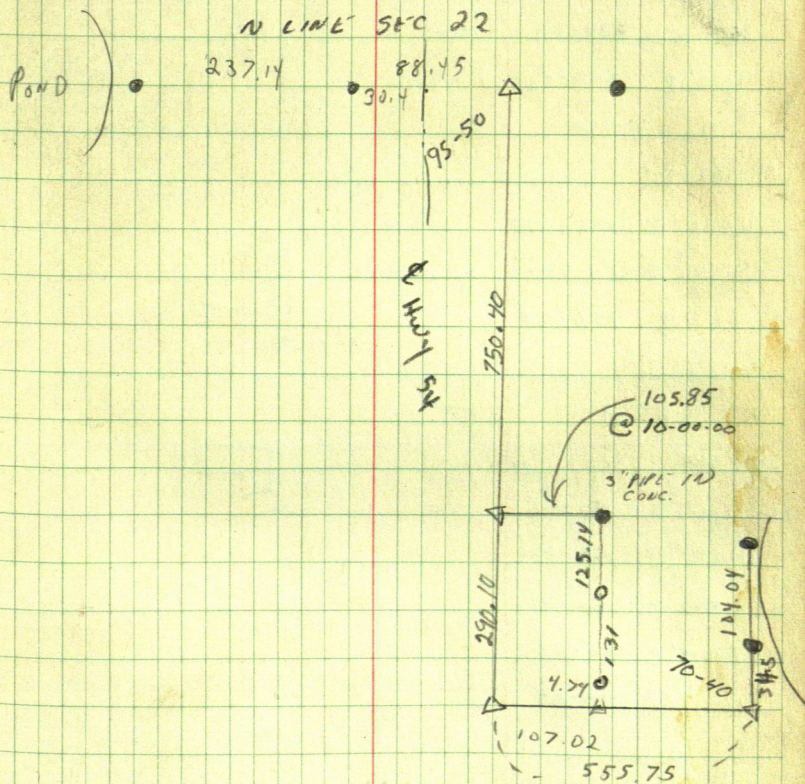 N LINE SEC 22
POND
237.14
88.45
30.4
95-50
℄ HWY 54
750.40
105.85
@ 10-00-00
3" PIPE IN
CONC.
125.14
290.10
131
104.04
70-40
107.02
555.75